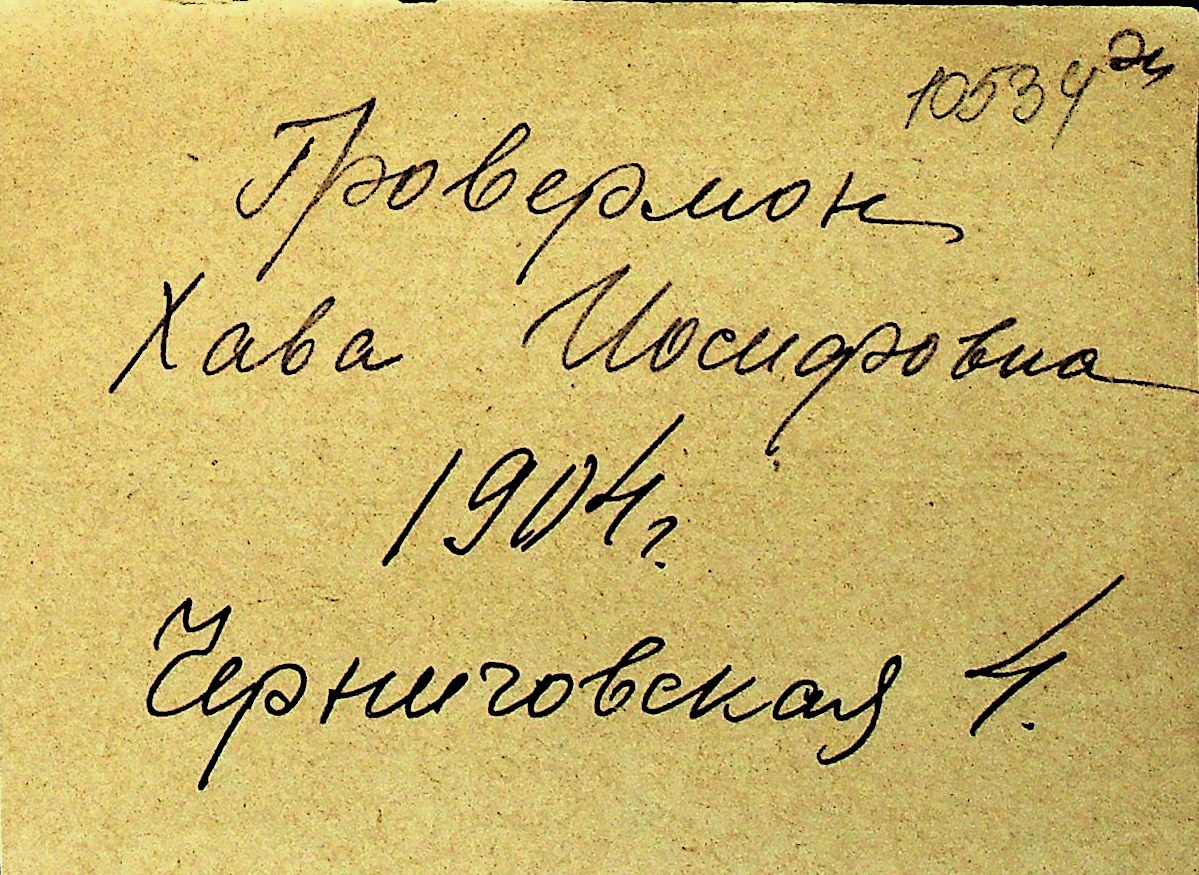 10534 эч
Гровермон
Хава Иосифовна
1904 г.
Черниговская 4.